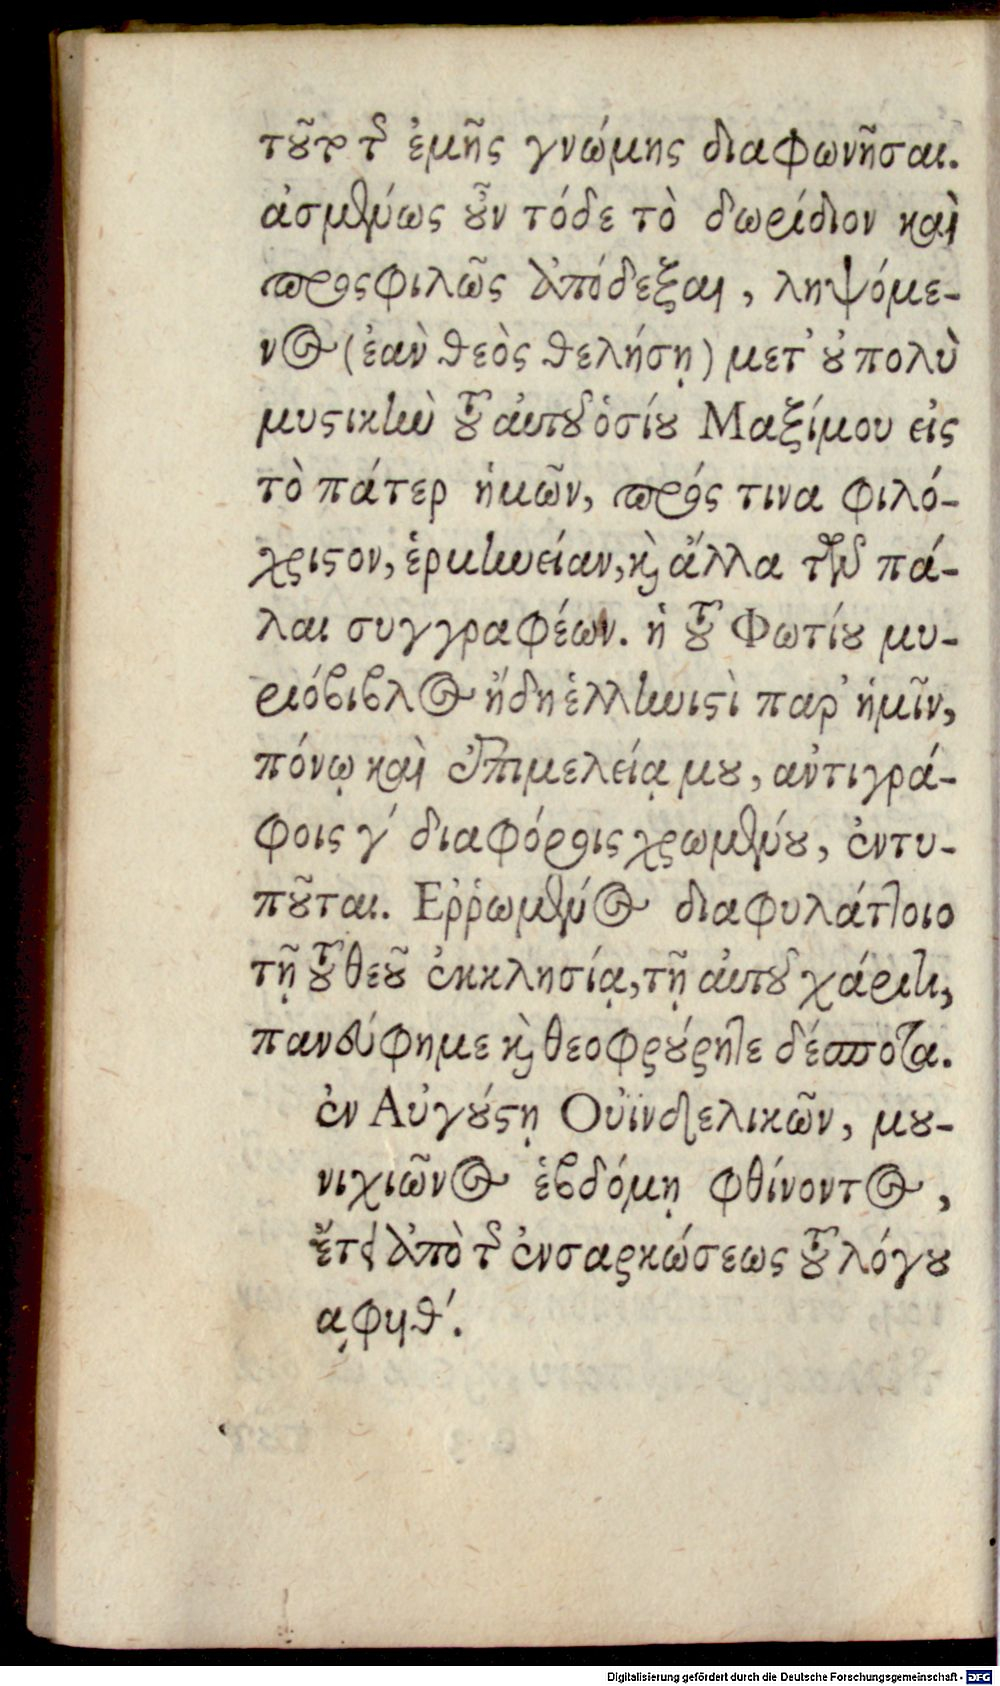 τοῦτο τῆς ἐμῆς γνώμης διαφωνῆσαι.
ἀσμένως οὖν τόδε τὸ δωρίδιον καὶ
προςφιλῶς ἀπόδεξαι, ληψόμε-
νος (ἐὰν θεὸς θελήσῃ) μετ' οὐ πολὺ
μυστικὴν τοῦ αὐτοῦ ὁσίου Μαξίμου εἰς
τὸ πάτερ ἡμῶν, πρός τινα φιλό-
χριστον, ἑρμηνείαν, καὶ ἄλλα τῶν πά-
λαι συγγραφέων. ἡ τοῦ Φωτίου μυ-
ριόβιβλος ἤδη ἑλληνιστὶ παρ' ἡμῖν,
πόνῳ καὶ ἐπιμελείᾳ μου, ἀντιγρά-
φοις γ' διαφόροις χρωμένου, ἐντυ-
ποῦται. Εῤῥωμένος διαφυλάττοιο
τῇ τοῦ θεοῦ ἐκκλησίᾳ, τῇ αὐτοῦ χάριτι,
πανεύφημε καὶ θεοφρούρητε δέσποτα.
ἐν Αὐγούστῃ Οὐϊνδελικῶν, μου-
νιχιῶνος ἑβδόμῃ φθίνοντος,
ἔτει ἀπὸ τῆς ἐνσαρκώσεως τοῦ λόγου
͵αφϟθ'.
Digitalisierung gefördert durch die Deutsche Forschungsgemeinschaft - DFG